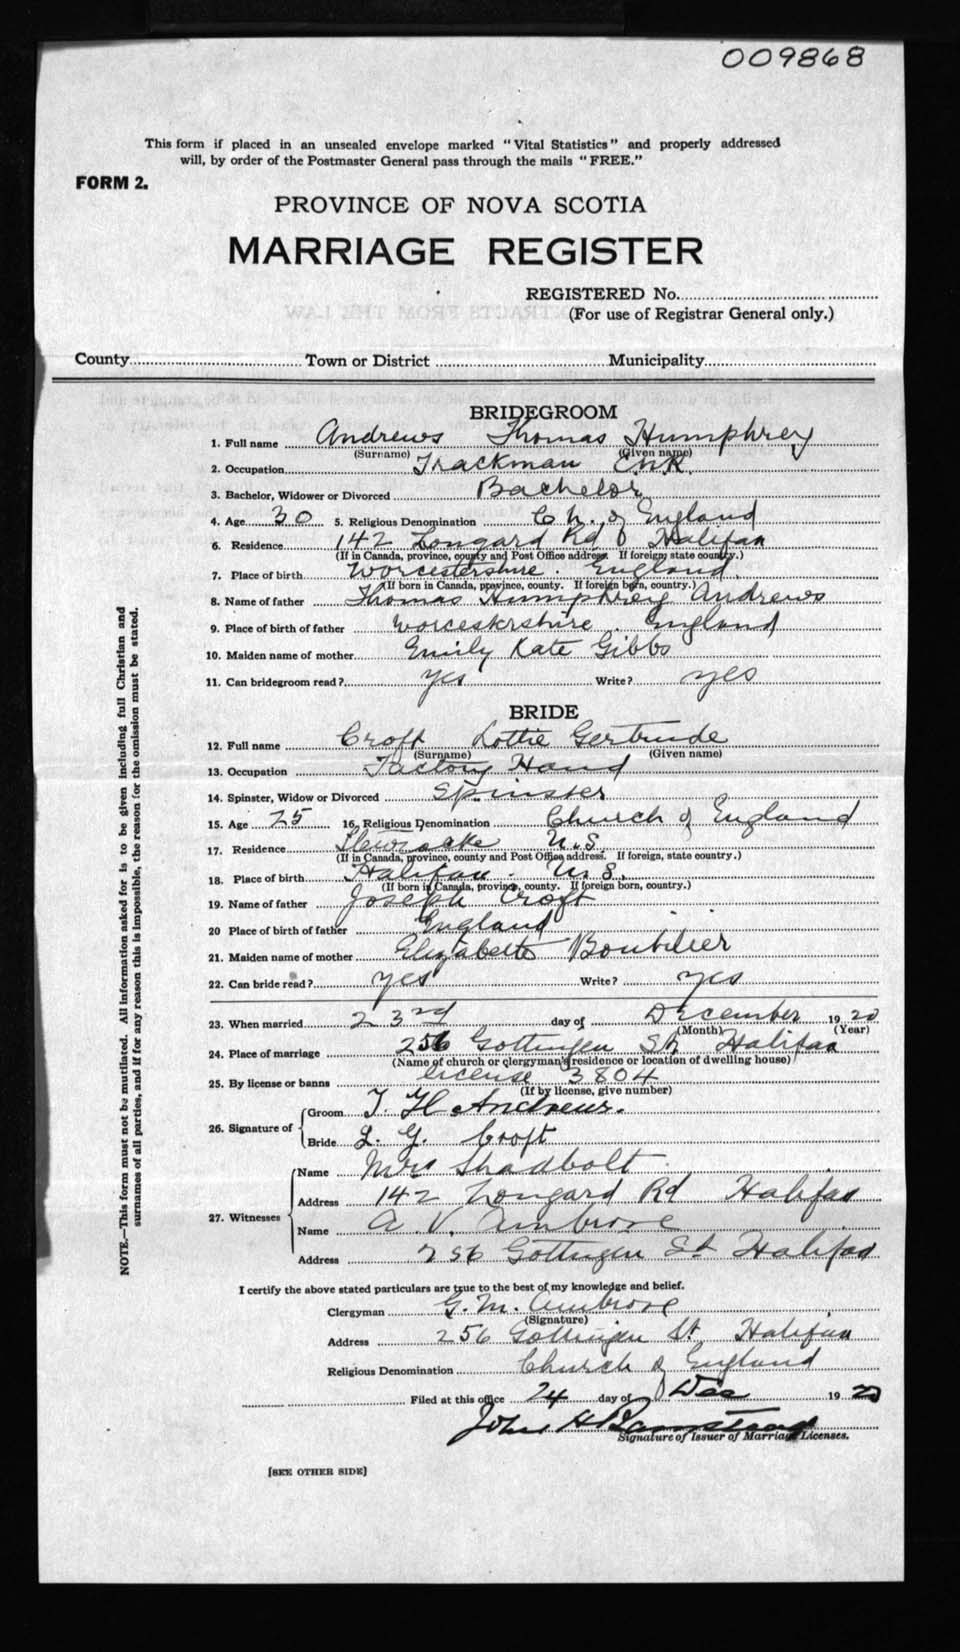 009868
This form if placed in an unsealed envelope marked "Vital Statistics" and properly addressed
will, by order of the Postmaster General pass through the mails "FREE."
FORM 2.
PROVINCE OF NOVA SCOTIA
MARRIAGE REGISTER
REGISTERED No.
(For use of Registrar General only.)
County Town or District Municipality
BRIDEGROOM
1. Full name Andrews Thomas Humphrey
(Surname) (Given name)
2. Occupation Trackman CNR.
3. Bachelor, Widower or Divorced Bachelor
4. Age 30 5. Religious Denomination Ch. of England
6. Residence 142 Longard Rd Halifax
(If in Canada, province, county and Post Office address. If foreign state country.)
7. Place of birth Worcestershire. England
(If born in Canada, province, county. If foreign born, country.)
8. Name of father Thomas Humphrey Andrews
9. Place of birth of father Worcestershire. England
10. Maiden name of mother Emily Kate Gibbs
11. Can bridegroom read? yes Write? yes
BRIDE
12. Full name Croft Lottie Gertrude
(Surname) (Given name)
13. Occupation Factory Hand
14. Spinster, Widow or Divorced Spinster
15. Age 25 16. Religious Denomination Church of England
17. Residence N.S.
(If in Canada, province, county and Post Office address. If foreign, state country.)
18. Place of birth Halifax. N.S.
(If born in Canada, province, county. If foreign born, country.)
19. Name of father Joseph Croft
20 Place of birth of father England
21. Maiden name of mother Elizabeth Boutilier
22. Can bride read? yes Write? yes
23. When married 23rd day of December 1920
(Month) (Year)
24. Place of marriage 256 Gottingen St. Halifax
(Name of church or clergyman's residence or location of dwelling house)
25. By license or banns license 3804
(If by license, give number)
26. Signature of Groom T. H Andrews.
Bride L. G. Croft
27. Witnesses Name Mrs Shadbolt
Address 142 Longard Rd Halifax
Name A. V. Ambrose
Address 256 Gottingen St Halifax
I certify the above stated particulars are true to the best of my knowledge and belief.
Clergyman G. M. Ambrose
(Signature)
Address 256 Gottingen St. Halifax
Religious Denomination Church of England
Filed at this office 24 day of Dec 1920
John H
Signature of Issuer of Marriage Licenses.
[SEE OTHER SIDE]
NOTE.—This form must not be mutilated. All information asked for is to be given including full Christian and
surnames of all parties, and if for any reason this is impossible, the reason for the omission must be stated.